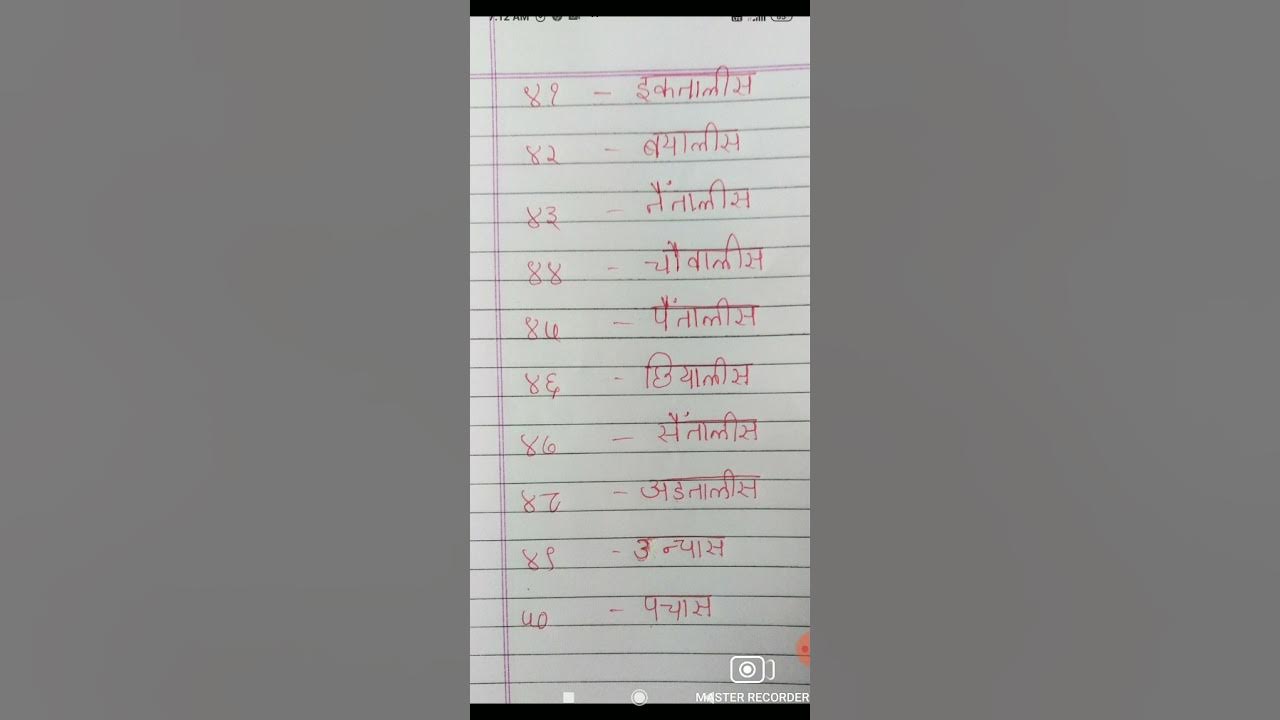 7:12 AM
४१ – इकतालीस
४२ – बयालीस
४३ – नैंतालीस
४४ – चौवालीस
४५ – पैंतालीस
४६ – छियालीस
४७ – सैंतालीस
४८ – अडतालीस
४९ – उन्यास
५० – पचास
MASTER RECORDER